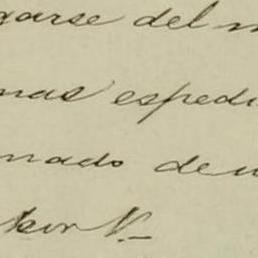 garse del m
mas espedi
nado de
por V.